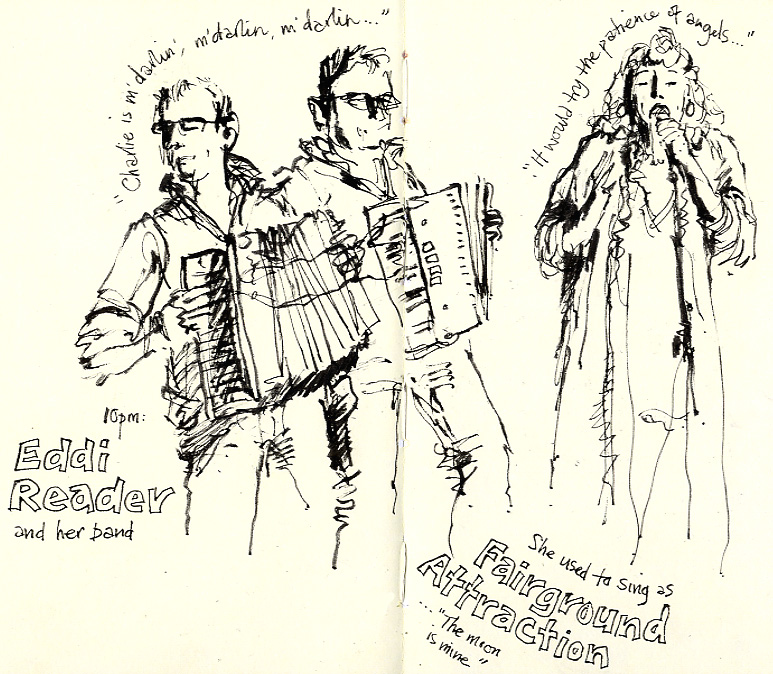 "Charlie is m'darlin', m'darlin, m'darlin..."
"It would try the patience of angels..."
10pm:
Eddi
Reader
and her band
She used to sing as
Fairground
Attraction
..."The moon
is mine"